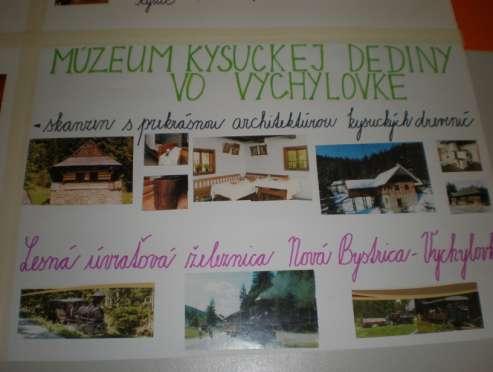 MÚZEUM KYSUCKEJ DEDINY
VO VYCHYLOVKE
- skanzen s prekrásnou architektúrou kysuckých dreveníc
Lesná úvraťová železnica Nová Bystrica - Vychylovka